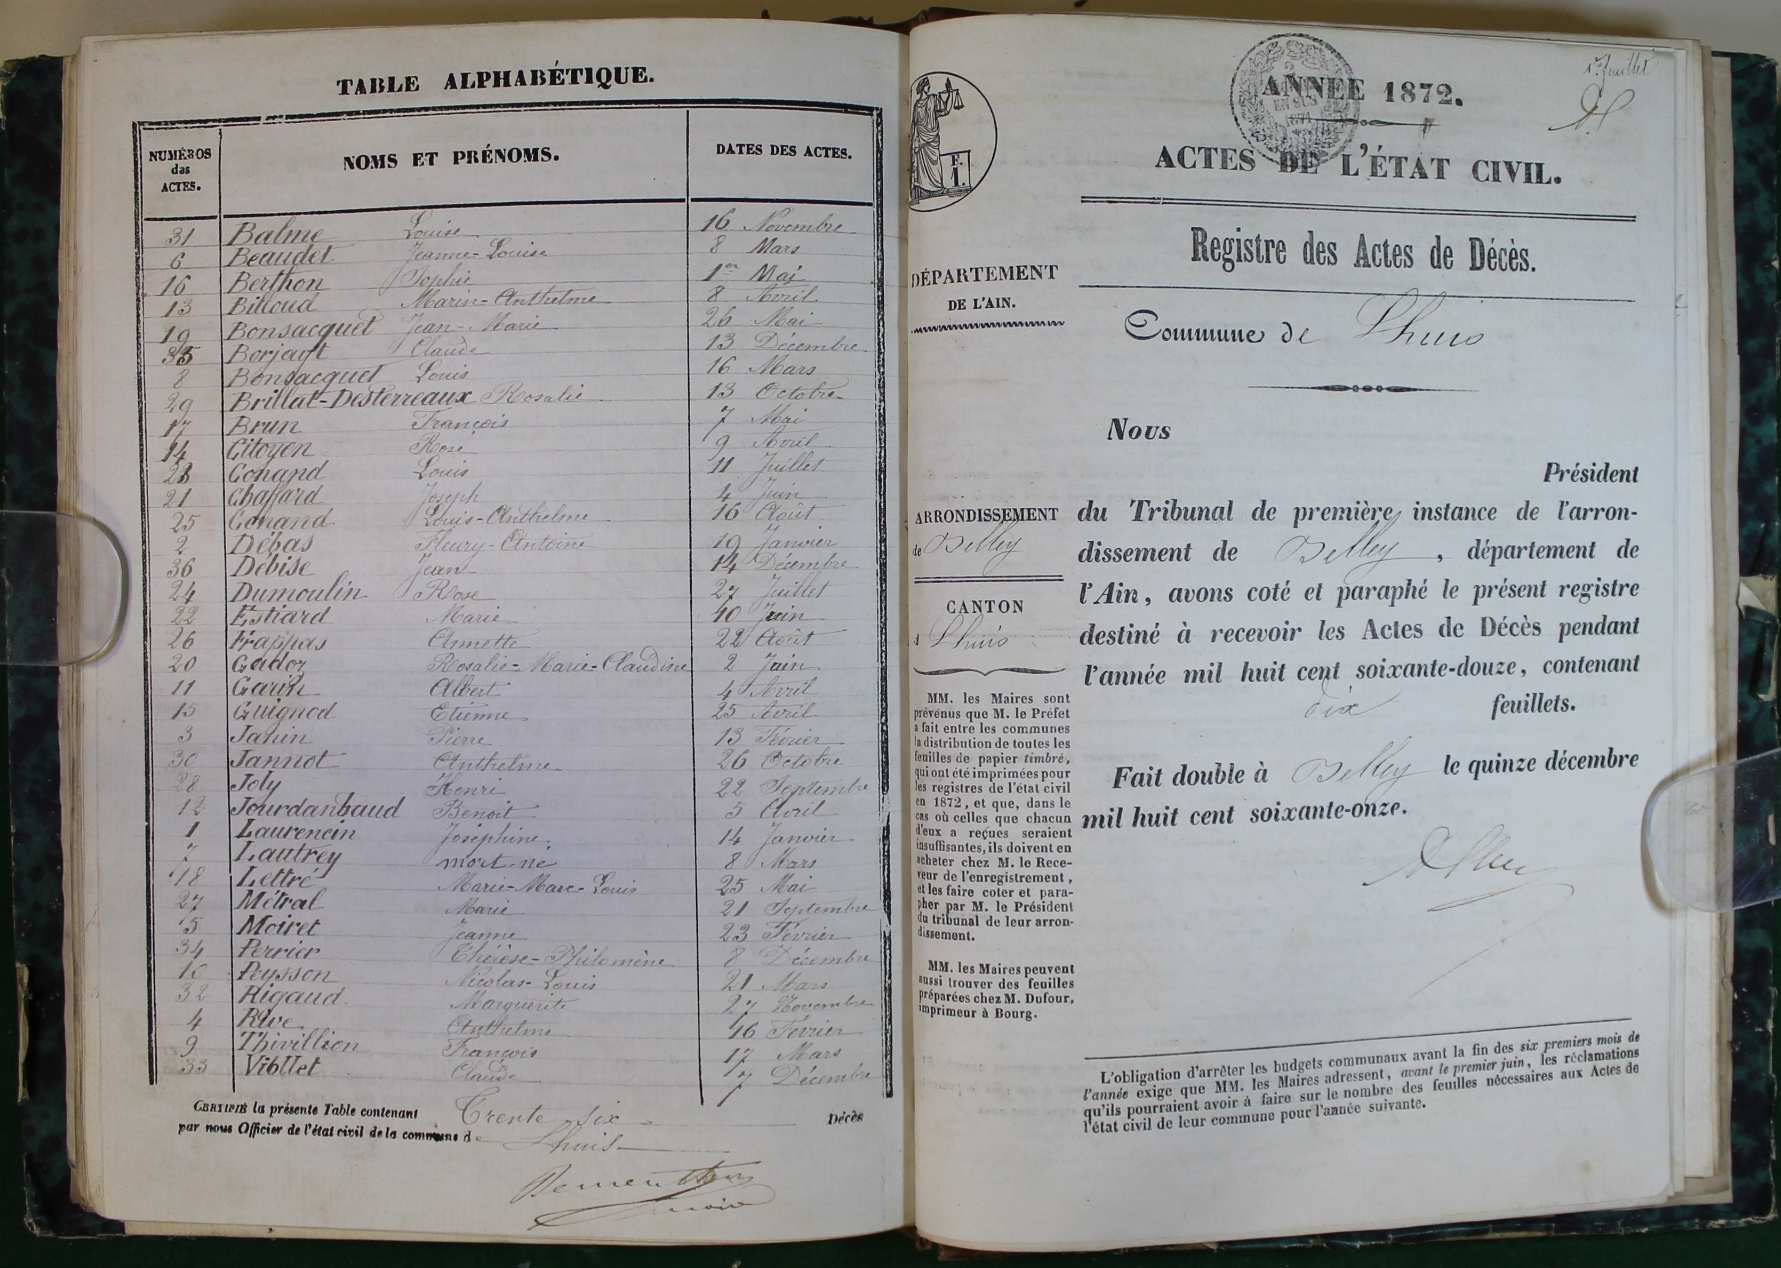 TABLE ALPHABÉTIQUE.
NUMÉROS des ACTES. NOMS ET PRÉNOMS. DATES DES ACTES.
31 Balme Louise 16 Novembre
6 Beaudet Jeanne-Louise 8 Mars
16 Berthon Sophie 1er Mai
13 Billoud Marin-Anthelme 8 Avril
19 Bonsacquet Jean-Marie 26 Mai
35 Borjayt Claude 13 Décembre
8 Bonsacquet Louis 16 Mars
29 Brillat-Desterreaux Rosalie 13 Octobre
17 Brun François 7 Mai
14 Citoyen Rose 9 Avril
23 Conand Louis 11 Juillet
21 Chaffard Joseph 4 Juin
25 Conand Louis-Anthelme 16 Août
2 Débas Fleury-Antoine 19 Janvier
36 Débise Jean 14 Décembre
24 Dumoulin Rose 27 Juillet
22 Estiard Marie 10 Juin
26 Frappas Annette 22 Août
20 Gadoz Rosalie-Marie-Claudine 2 Juin
11 Garin Albert 4 Avril
15 Guignod Etienne 25 Avril
3 Janin Pierre 13 Février
30 Jannot Anthelme 26 Octobre
28 Joly Henri 22 Septembre
12 Jourdanbaud Benoit 5 Avril
1 Laurencin Joséphine 14 Janvier
7 Lautrey mort-né 8 Mars
18 Lettré Marie-Marc-Louis 25 Mai
27 Métral Marie 21 Septembre
5 Moiret Jeanne 23 Février
34 Perrier Thérèse-Philomène 8 Décembre
10 Peysson Nicolas-Louis 21 Mars
32 Rigaud Marguerite 27 Novembre
4 Rive Anthelme 16 Février
9 Thivillion François 17 Mars
33 Viollet Claude 7 Décembre
CERTIFIÉ la présente Table contenant Trente six Décès
par nous Officier de l'état civil de la commune de Lhuis
1er feuillet
2
EN SUS
1871
ANNÉE 1872.
ACTES DE L'ÉTAT CIVIL.
F. 1.
Registre des Actes de Décès.
DÉPARTEMENT
DE L'AIN.
Commune de Lhuis
Nous
Président
du Tribunal de première instance de l'arron-
dissement de Belley, département de
l'Ain, avons coté et paraphé le présent registre
destiné à recevoir les Actes de Décès pendant
l'année mil huit cent soixante-douze, contenant
dix feuillets.
Fait double à Belley le quinze décembre
mil huit cent soixante-onze.
ARRONDISSEMENT
de Belley
CANTON
d Lhuis
MM. les Maires sont
prévenus que M. le Préfet
a fait entre les communes
la distribution de toutes les
feuilles de papier timbré,
qui ont été imprimées pour
les registres de l'état civil
en 1872, et que, dans le
cas où celles que chacun
d'eux a reçues seraient
insuffisantes, ils doivent en
acheter chez M. le Rece-
veur de l'enregistrement,
et les faire coter et para-
pher par M. le Président
du tribunal de leur arron-
dissement.
MM. les Maires peuvent
aussi trouver des feuilles
préparées chez M. Dufour,
imprimeur à Bourg.
L'obligation d'arrêter les budgets communaux avant la fin des six premiers mois de
l'année exige que MM. les Maires adressent, avant le premier juin, les réclamations
qu'ils pourraient avoir à faire sur le nombre des feuilles nécessaires aux Actes de
l'état civil de leur commune pour l'année suivante.